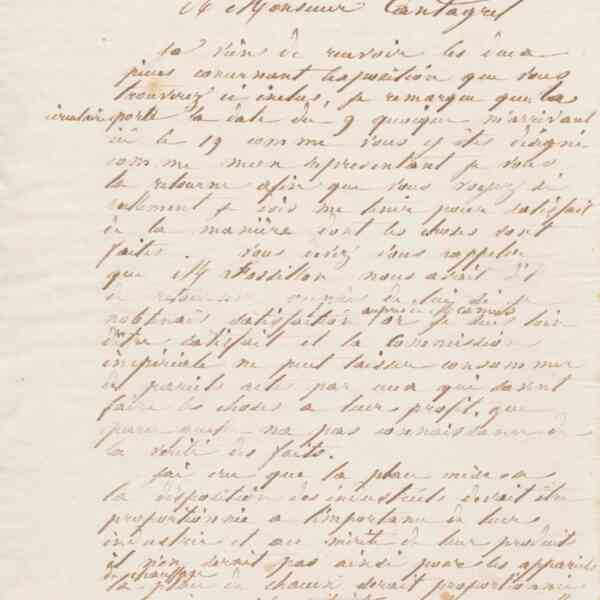 A Monsieur Cantagrel
Je viens de recevoir les deux
pièces concernant l'exposition que vous
trouverez ci inclus, je remarque que la
circulaire porte la date du 9 quoique m'arrivant
ici le 19 comme vous y êtes désigné
comme mon représentant je vous
la retourne afin que vous voyez si
réellement je dois me tenir pour satisfait
de la manière dont les choses sont
faites. Vous devez vous rappeler
que Mr nous avait dit
de retourner auprès de lui si je
auprès de Mr
n'obtenais satisfaction or je suis loin
d'être satisfait et la Commission
impériale ne peut laisser consommer
de pareils actes par ceux qui savent
faire les choses a leur profit, que
parce quelle na pas connaissance de
la vérité des faits.
J'ai cru que la place mise a
la disposition des industriels devait être
proportionnée a l'importance de leurs
industrie et au mérite de leur produits
il n'en serait pas ainsi pour les appareils
de chauffage
la place de chacun serait proportionnée